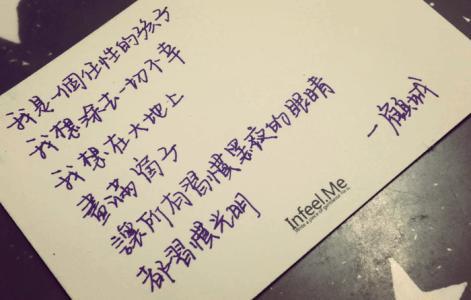 我是一個任性的孩子
我想涂去一切不幸
我想在大地上
畫滿窗子
讓所有習慣黑夜的眼睛
都習慣光明
一顧城
Infeel.Me